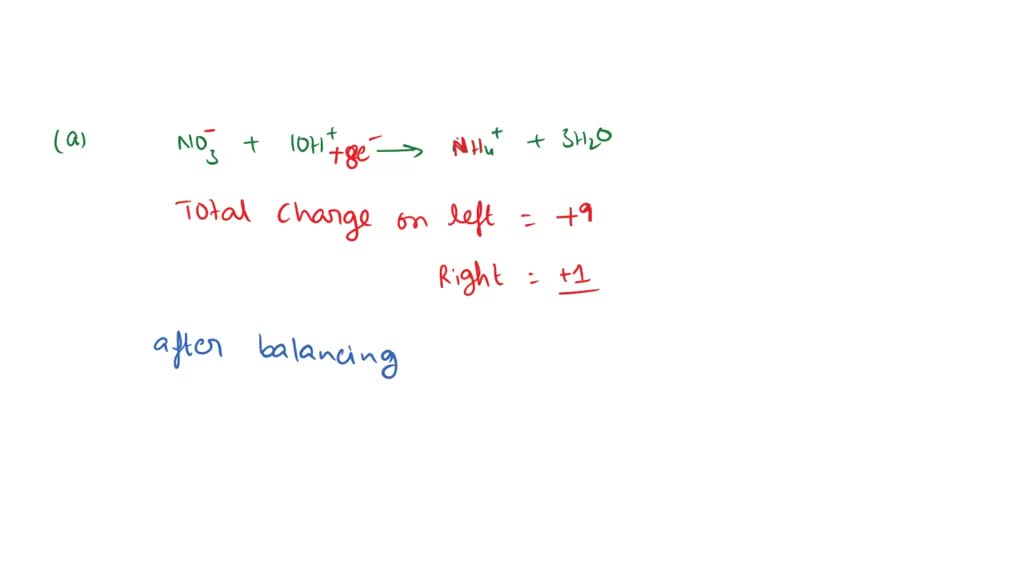 (a) NO₃⁻ + 10H⁺ + 8e⁻ → NH₄⁺ + 3H₂O
Total charge on left = +9
Right = +1
after balancing